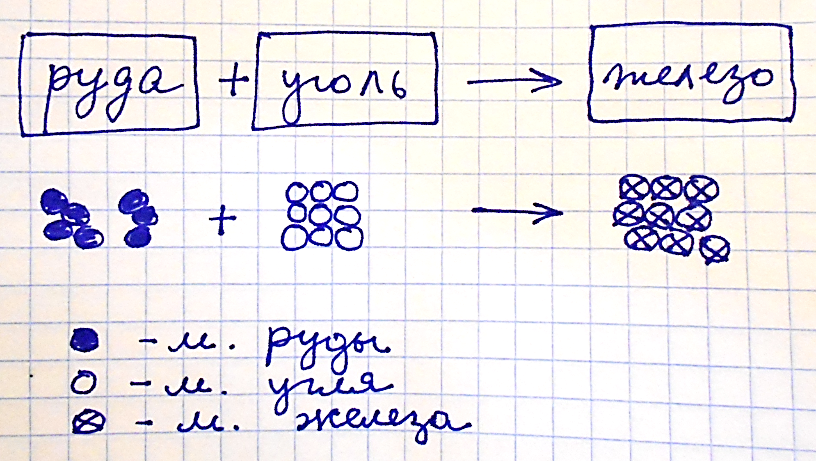 руда + уголь → железо
+ →
- м. руды
- м. угля
- м. железа